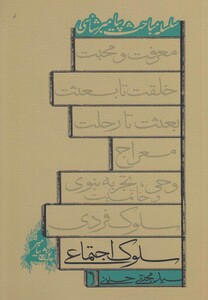 سلسله مباحث پیامبرشناسی
معرفت و محبت
خلقت تا بعثت
بعثت تا رحلت
معراج
وحی؛ تجربه نبوی
و خاتمیت
سلوک فردی
سلوک اجتماعی
سید مجتبی حسینی